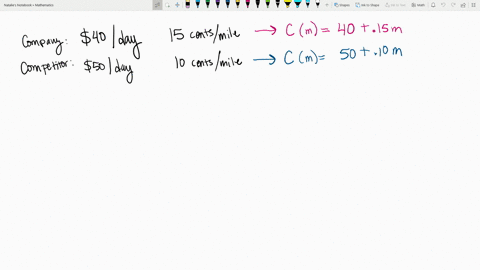 Natalie's Notebook • Mathematics
Shapes Ink to Shape Ink to Math
Company: $40/day 15 cents/mile → C(m) = 40 + .15m
Competitor: $50/day 10 cents/mile → C(m) = 50 + .10m